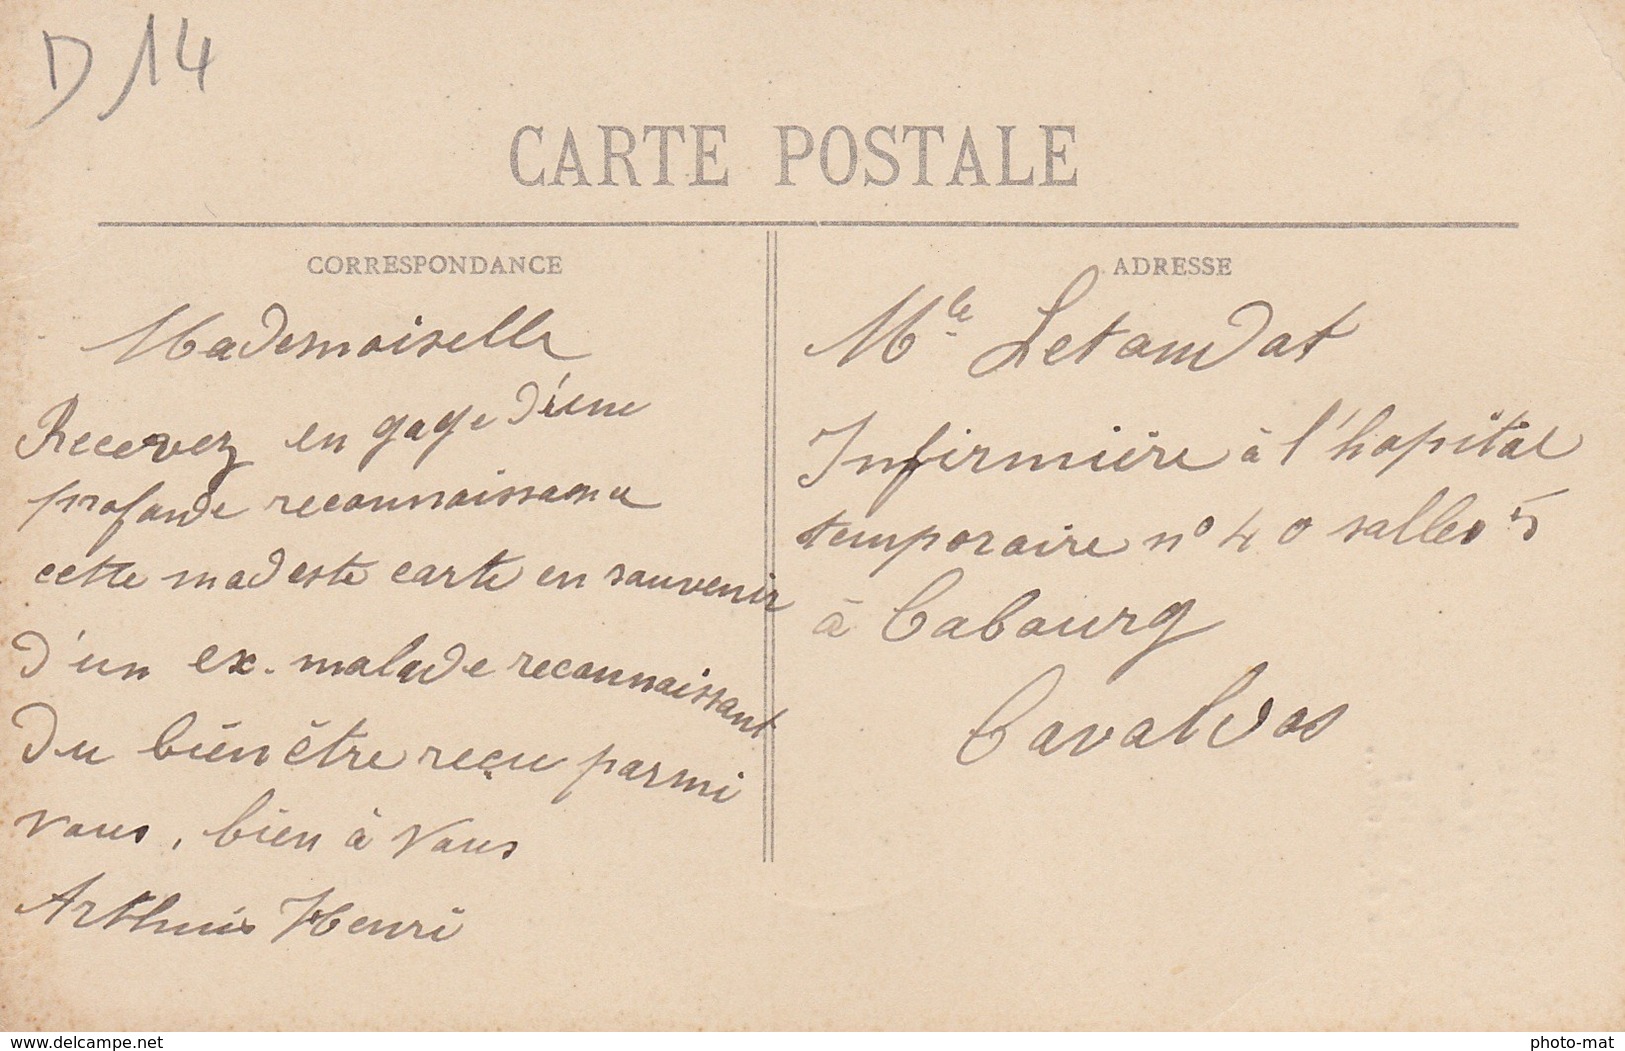 D 14
CARTE POSTALE
CORRESPONDANCE
Mademoiselle
Recevez en gage d'une
profonde reconnaissance
cette modeste carte en souvenir
d'un ex-malade reconnaissant
du bien être reçu parmi
vous, bien à vous
Henri
ADRESSE
Mle Letandat
Infirmière à l'hôpital
temporaire n° 40 salles 5
à Cabourg
Cavaldos
delcampe.net
photo-mat